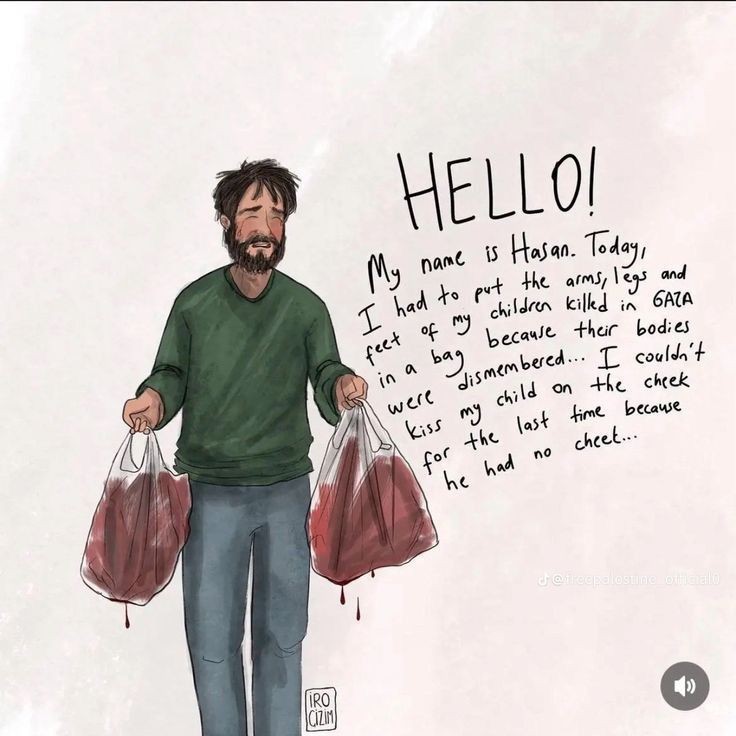 HELLO!
My name is Hasan. Today,
I had to put the arms, legs and
feet of my children killed in GAZA
in a bag because their bodies
were dismembered... I couldn't
kiss my child on the cheek
for the last time because
he had no cheet...
@freepalostine_official0
iRO
ÇİZİM